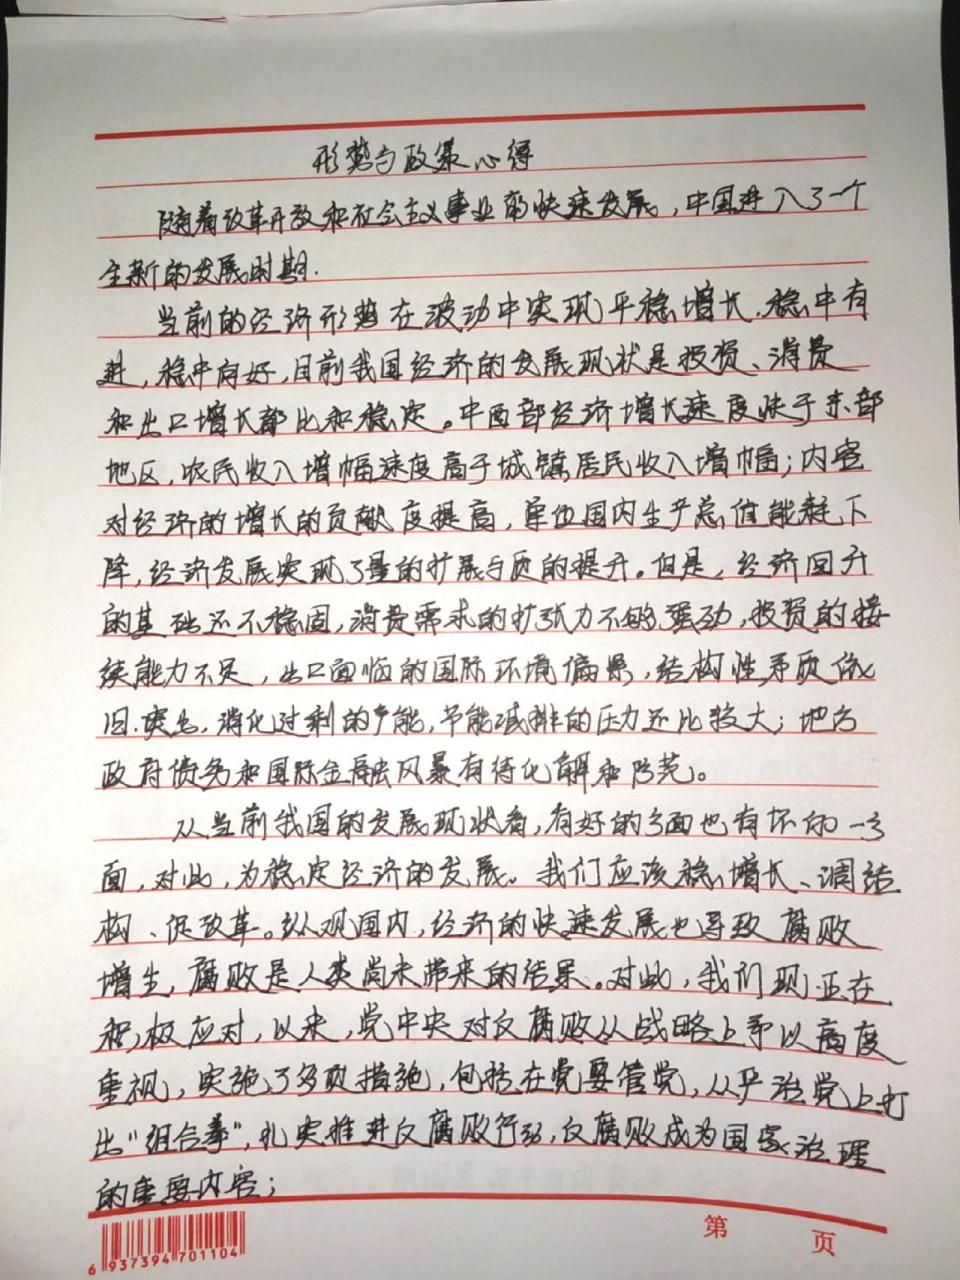 形势与政策心得
随着改革开放和社会主义事业的快速发展，中国进入了一个
全新的发展时期.
当前的经济形势在波动中实现平稳增长.稳中有
进，稳中向好，目前我国经济的发展现状是投资、消费
和出口增长都比和稳定。中西部经济增长速度快于东部
地区，农民收入增幅速度高于城镇居民收入增幅；内容
对经济的增长的贡献度提高，单位国内生产总值能耗下
降，经济发展实现了量的扩展与质的提升。但是，经济回升
的基础还不稳固，消费需求的扩张力不够强劲，投资的接
续能力不足，出口面临的国际环境偏紧，结构性矛质依
旧.突出，消化过剩的产能，节能减排的压力还比较大；地方
政府债务和国际金融风暴有待化解和防范。
从当前我国的发展现状看，有好的方面也有坏的一方
面，对此，为稳定经济的发展。我们应该稳增长、调结
构、促改革。纵观国内，经济的快速发展也导致腐败
增生，腐败是人类尚未带来的结果。对此，我们现正在
积极应对，以来，党中央对反腐败从战略上予以高度
重视，实施了多项措施，包括在党要管党，从严治党上打
出“组合拳”，扎实推进反腐败行动，反腐败成为国家治理
的重要内容；
第 页
6 937394 701104